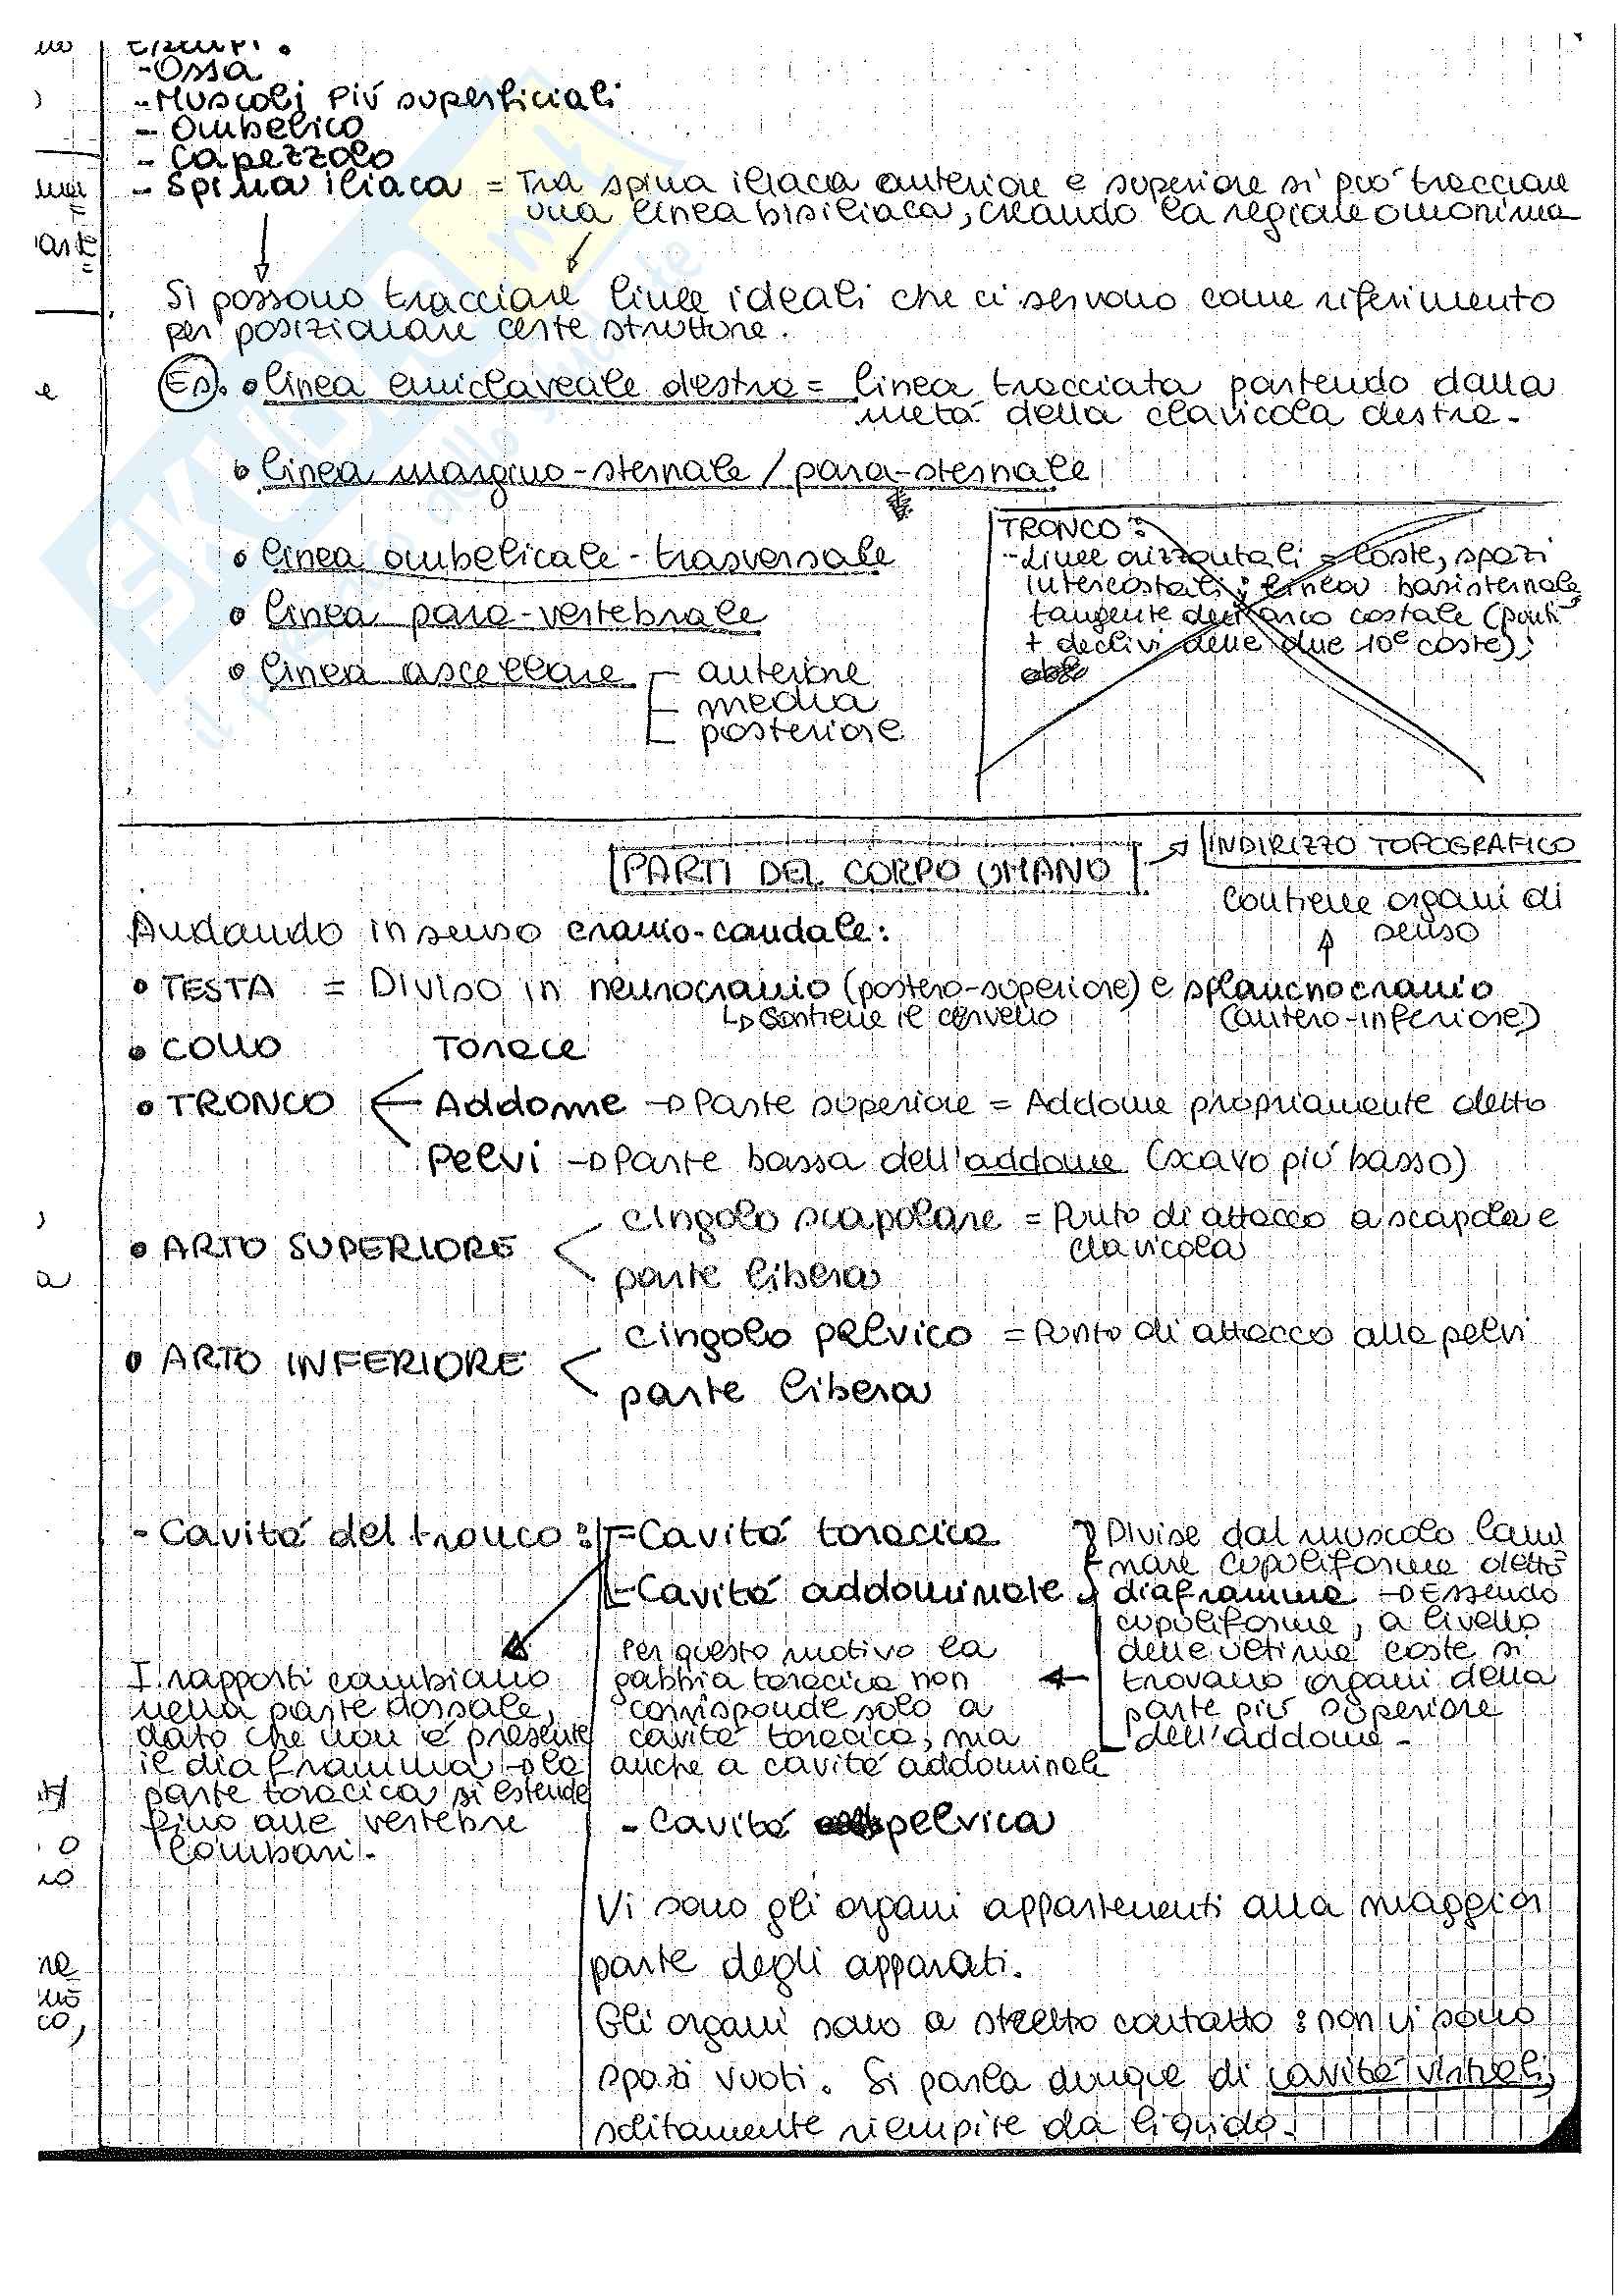 Esempi:
- Ossa
- Muscoli più superficiali
- Ombelico
- Capezzolo
- Spina iliaca = Tra spina iliaca anteriore e superiore si può tracciare
una linea bisiliaca, creando la regione omonima
Si possono tracciare linee ideali che ci servono come riferimento
per posizionare certe strutture.
Es. • linea emiclaveale destra = linea tracciata partendo dalla
metà della clavicola destra.
• linea margino-sternale / para-sternale
• linea ombelicale-trasversale
• linea para-vertebrale
• linea ascellare anteriore
media
posteriore
TRONCO:
- Linee orizzontali = coste, spazi
intercostali; linea basisternale,
tangente dell'arco costale (punti
+ declivi delle due 10e coste);
PARTI DEL CORPO UMANO → INDIRIZZO TOPOGRAFICO
Andando in senso cranio-caudale:
Contiene organi di
senso
• TESTA = Diviso in neurocranio (postero-superiore) e splancnocranio
↳ Contiene il cervello (antero-inferiore)
• COLLO
• TRONCO Torace
Addome → Parte superiore = Addome propriamente detto
Pelvi → Parte bassa dell'addome (scavo più basso)
• ARTO SUPERIORE < cingolo scapolare = Punto di attacco a scapola e
clavicola
parte libera
• ARTO INFERIORE < cingolo pelvico = Punto di attacco alla pelvi
parte libera
- Cavità del tronco: - Cavità toracica
- Cavità addominale
Divise dal muscolo lami
nare cupoliforme detto
diaframma → Essendo
cupoliforme, a livello
delle ultime coste si
trovano organi della
parte più superiore
dell'addome.
Per questo motivo la
gabbia toracica non
corrisponde solo a
cavità toracica, ma
anche a cavità addominale
I rapporti cambiano
nella parte dorsale,
dato che non è presente
il diaframma → la
parte toracica si estende
fino alle vertebre
lombari.
- Cavità pelvica
Vi sono gli organi appartenenti alla maggior
parte degli apparati.
Gli organi sono a stretto contatto: non vi sono
spazi vuoti. Si parla dunque di cavità virtuali,
solitamente riempite da liquido.